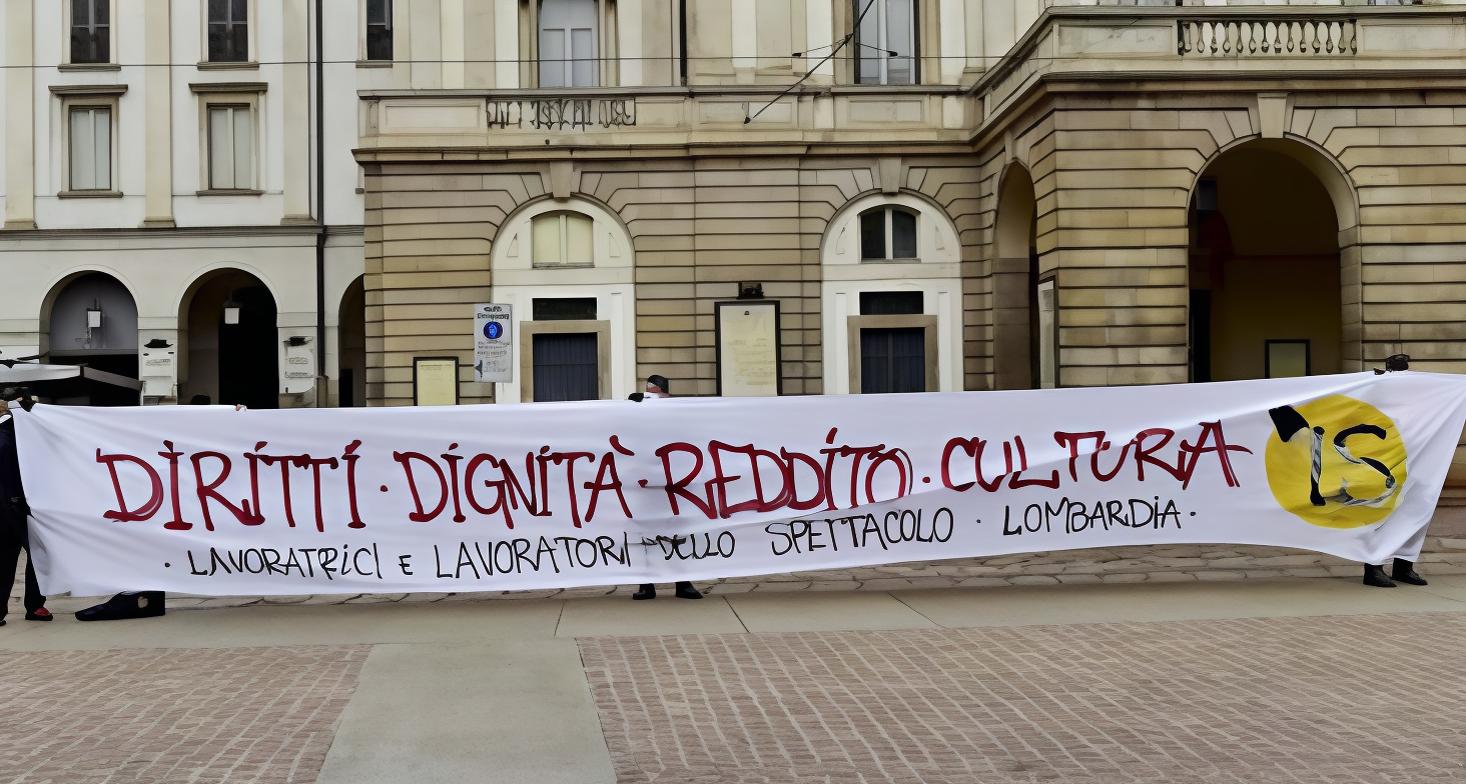 DIRITTI · DIGNITÀ · REDDITO · CULTURA
· LAVORATRICI E LAVORATORI DELLO SPETTACOLO · LOMBARDIA ·